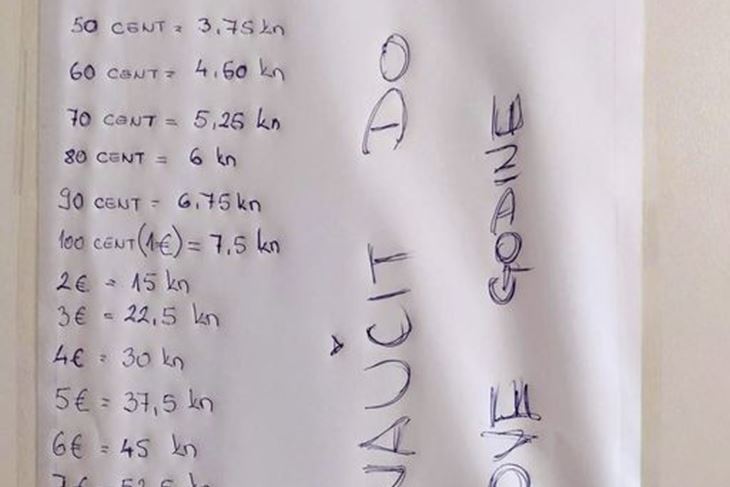 50 CENT = 3,75 kn
60 CENT = 4,60 kn
70 CENT = 5,25 kn
80 CENT = 6 kn
90 CENT = 6,75 kn
100 CENT (1€) = 7,5 kn
2€ = 15 kn
3€ = 22,5 kn
4€ = 30 kn
5€ = 37,5 kn
6€ = 45 kn
7€ = 52,5 kn
NAUČIT DO
OVE GODINE